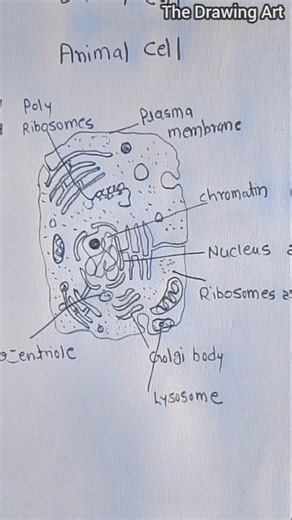 The Drawing Art
Animal cell
Poly
Ribosomes
Plasma
membrane
chromatin
Nucleus
Ribosomes
Golgi body
Lysosome